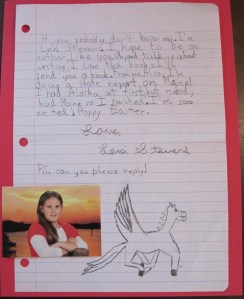 Hi, you probably don't know me. I'm
Lexi Stevens. I hope to be an
author like you. Mom talk about
writing. I love the book
send you a book. From me. Also, I'm
doing a state report on Maine!
I had Alaska at first, but nobody
had Maine so I switched. I'm sooo
excited. Happy Easter.
Love,
Lexi Stevens
P.S. can you please reply!